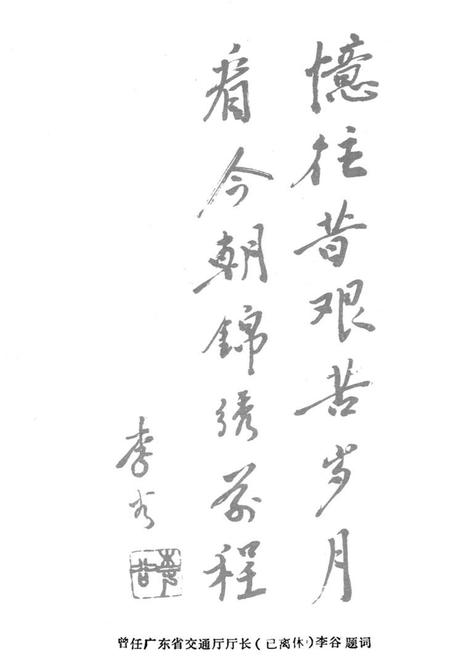 憶往昔艰苦岁月
看今朝锦绣前程
李谷
曾任广东省交通厅厅长(已离休)李谷题词